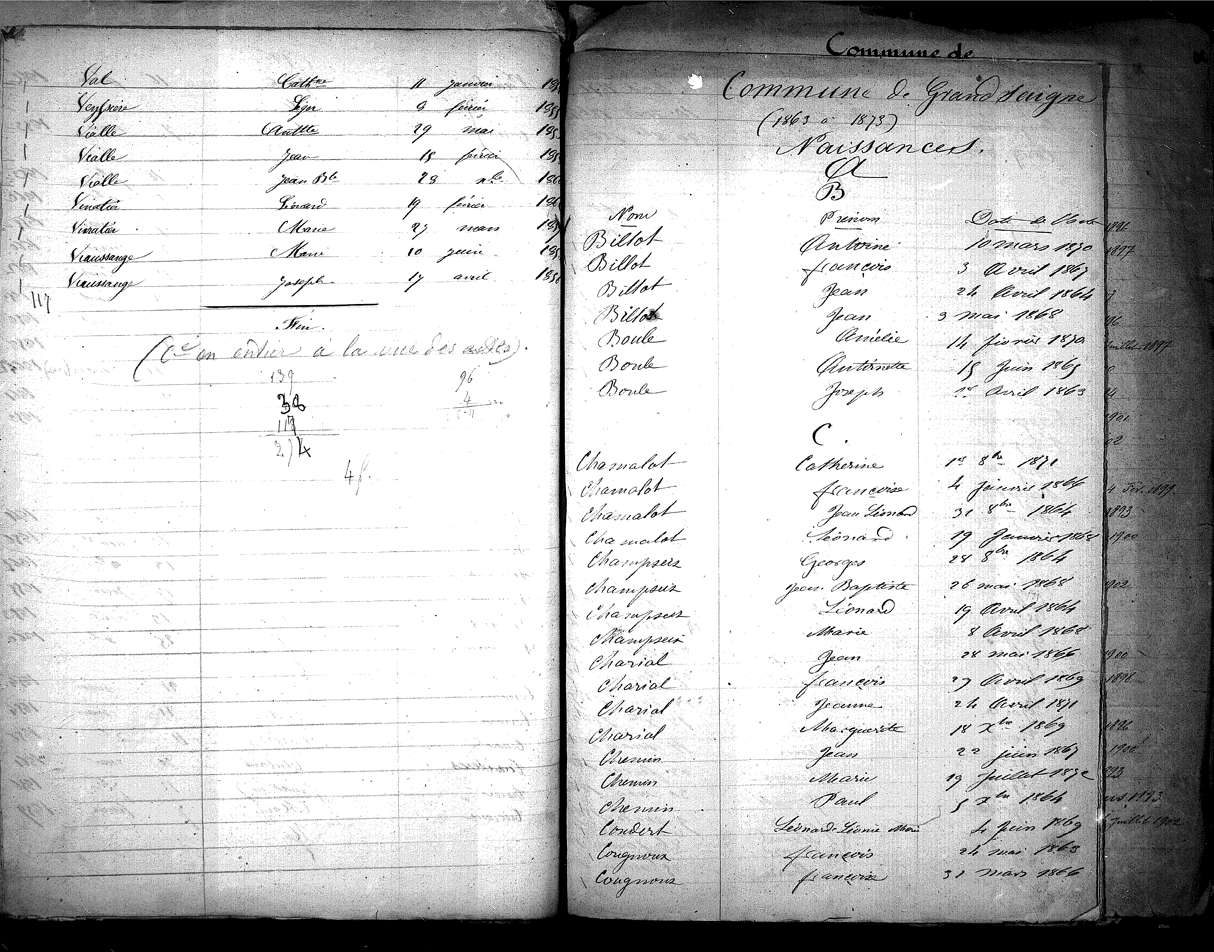 Val Cath^ne 11 janvier 185
Veyssière Léger 9 février 185
Vialle Ant^tte 29 mai 185
Vialle Jean 15 février 185
Vialle Jean B^te 28 x^bre 186
Vinatier Léonard 19 février 186
Vinatier Marie 27 mars 185
Viaussange Marie 10 juin 185
Viaussange Joseph 17 avril 185
117
Fin.
en entier à la vue des actes).
139 96
38 4
117
274
4 f.
Commune de
Commune de Grandsaigne
(1863 à 1873)
Naissances.
A
B
Nom Prénom Date de l'acte
Billot Antoine 10 mars 1870
Billot françois 3 Avril 1867
Billot Jean 24 Avril 1864
Billot Jean 3 mai 1868
Boule Amélie 14 février 1870
Boule Antoinette 15 Juin 1865
Boule Joseph 1er Avril 1863
C.
Chamalot Catherine 1er 8bre 1871
Chamalot françoise 4 Janvier 1866
Chamalot Jean Léonard 31 8bre 1864
Chamalot Léonard 19 Janvier 1868
Champseix Georges 28 8bre 1864
Champseix Jean-Baptiste 26 mai 1868
Champseix Léonard 19 Avril 1864
Champseix Marie 8 Avril 1868
Charial Jean 28 mai 1866
Charial françois 27 Avril 1869
Charial Jeanne 24 Avril 1871
Charial Marguerite 18 Xbre 1869
Chemin Jean 22 juin 1867
Chemin Marie 19 Juillet 1872
Chemin Paul 5 Xbre 1864
Coudert Léonard-Léonie Marie 4 Juin 1869
Cougnoux françois 24 mai 1863
Cougnoux françoise 31 mars 1866